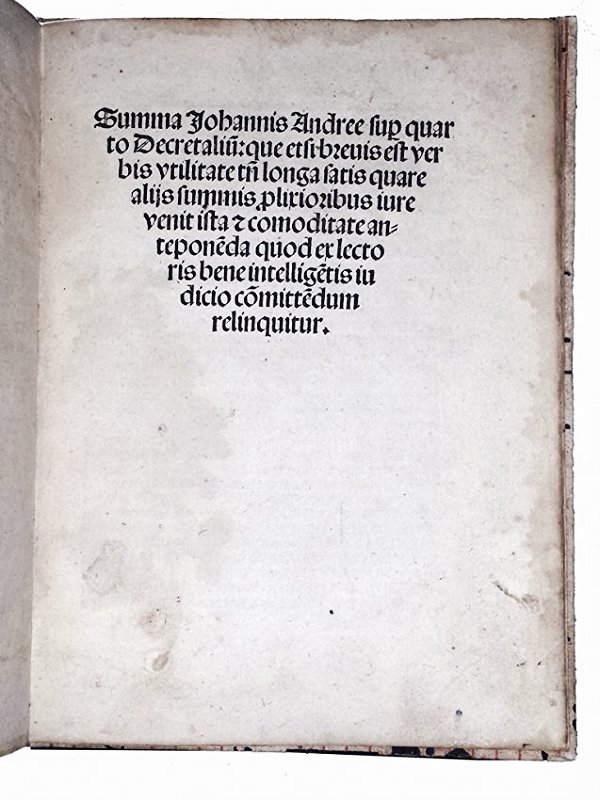 Summa Johannis Andree sup̱ quar
to Decretaliū: que etsi breuis est ver
bis vtilitate tñ longa satis quare
alijs summis ꝓlixioribus iure
venit ista ⁊ cōmoditate an⸗
teponēda quod ex lecto
ris bene intelligētis iu
dicio cōmittēdum
relinquitur.